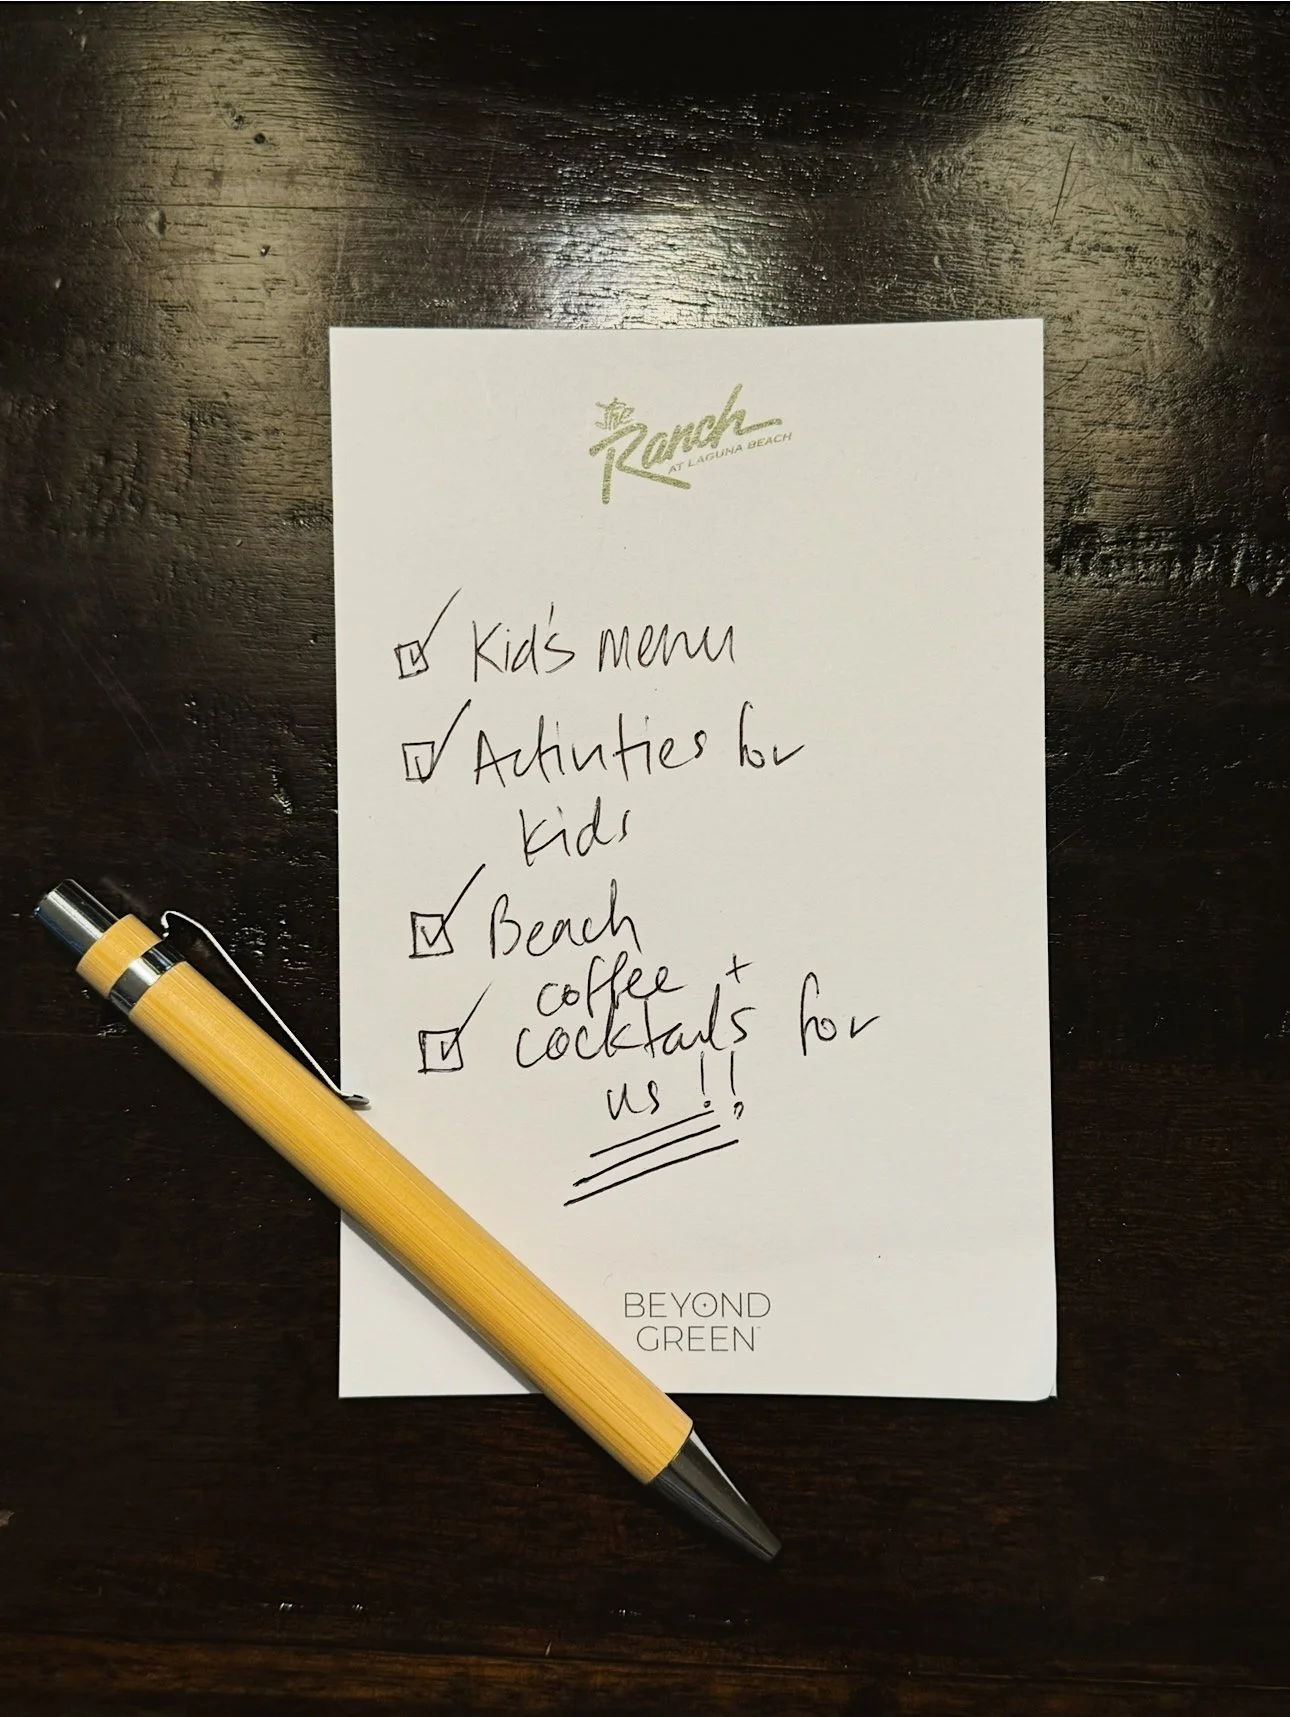 the
Ranch
AT LAGUNA BEACH
Kid's menu
Activities for
kids
Beach
coffee +
cocktails for
us !!
BEYOND
GREEN™